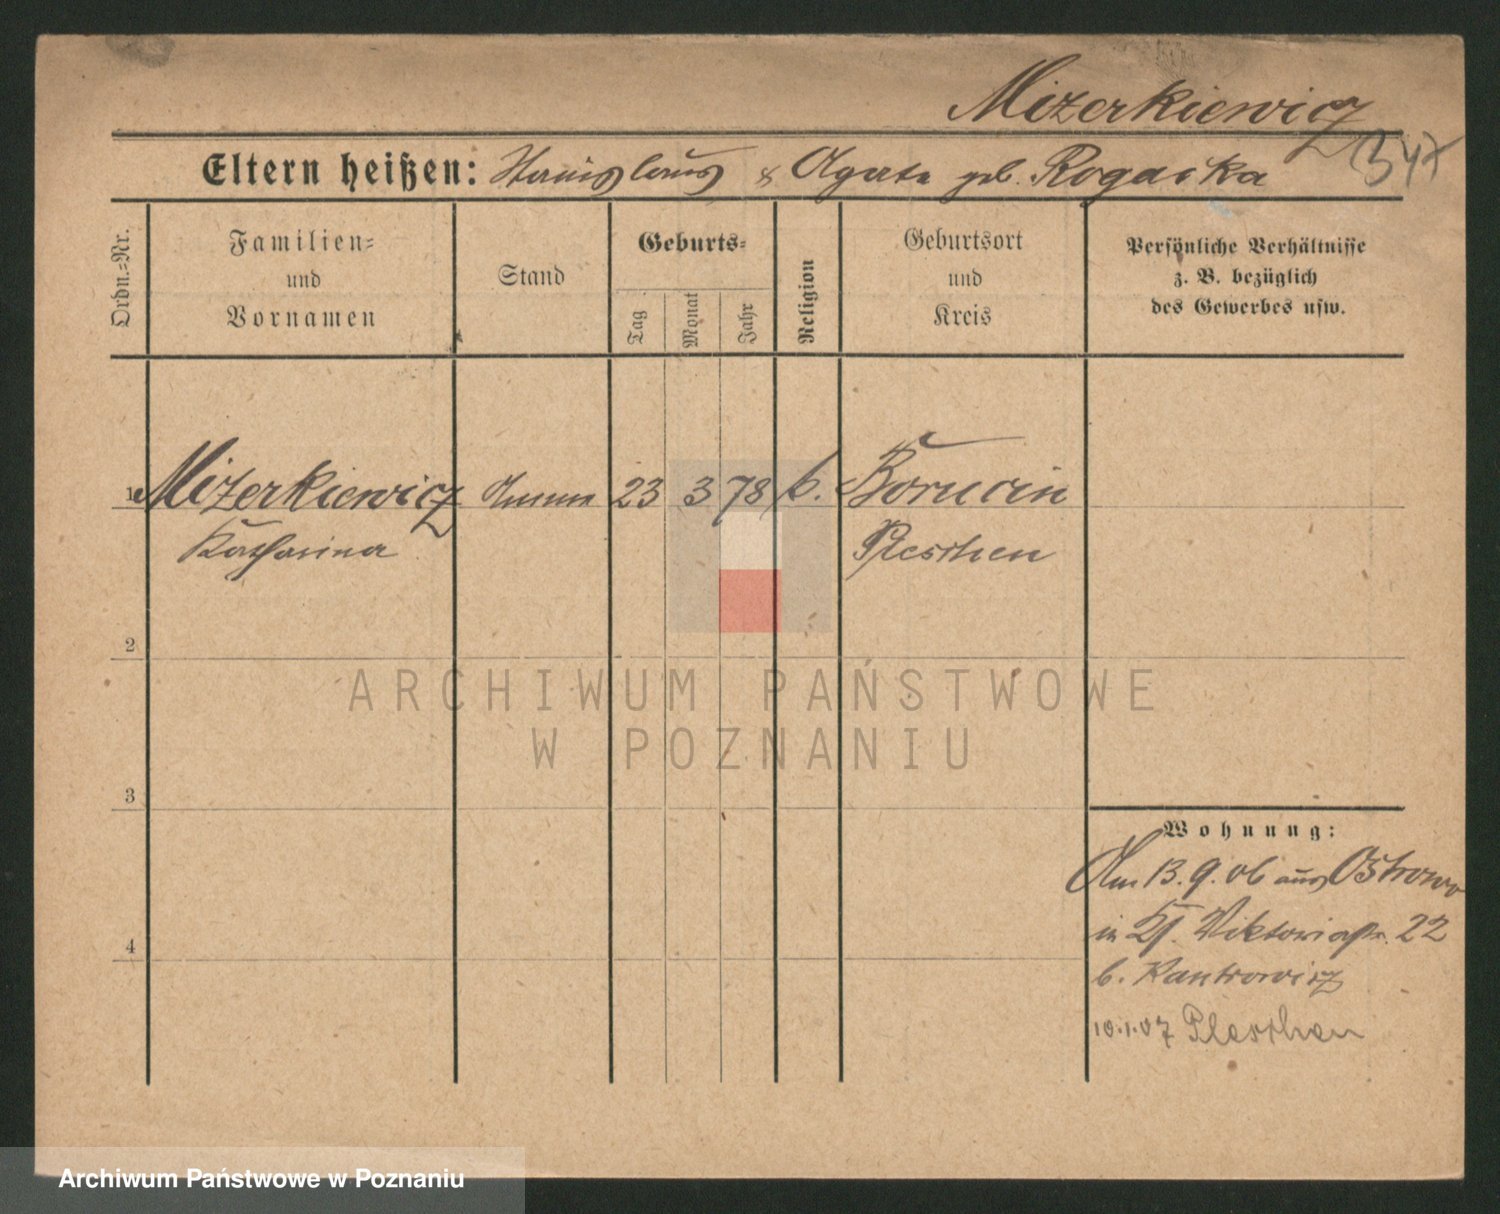 Mizerkiewicz
347
Eltern heißen: Stanislaus & Agata geb. Rogacka
Ordn.-Nr.
Familien-
und
Vornamen
Stand
Geburts-
Tag
Monat
Jahr
Religion
Geburtsort
und
Kreis
Persönliche Verhältnisse
z. B. bezüglich
des Gewerbes usw.
1 Mizerkiewicz Amme 23 3 78 k. Borucin
Katharina Pleschen
2
3
4
Wohnung:
Am 13.9.06 aus Ostrowo
in Viktoriastr. 22
b. Kantrowicz
10.1.07 Pleschen
ARCHIWUM PAŃSTWOWE
W POZNANIU
Archiwum Państwowe w Poznaniu